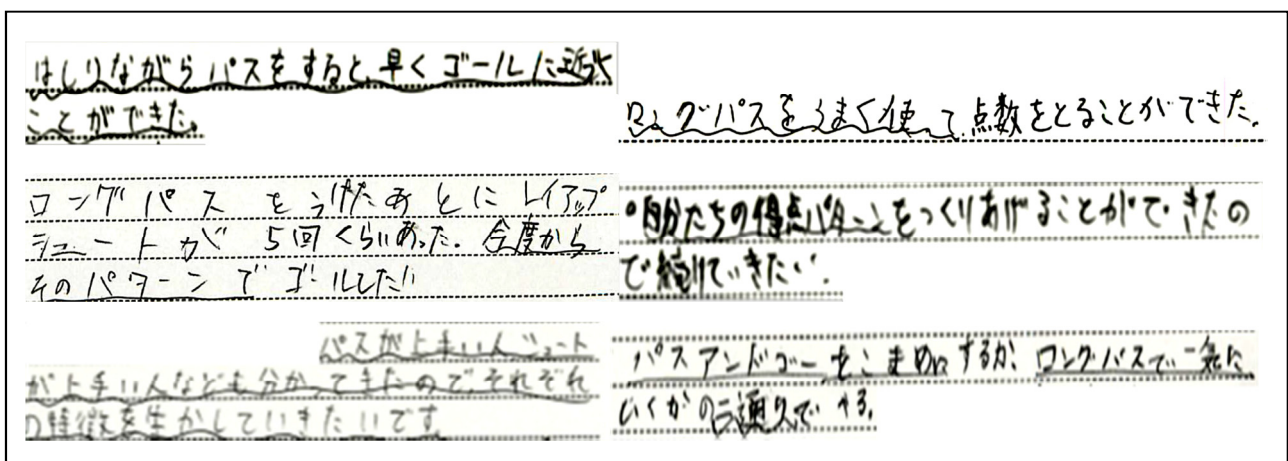 はしりながらパスをすると、早くゴールに近づく
ことができた。
ロングパスをうけたあとにレイアップ
シュートが5回くらいあった。今度から
そのパターンでゴールしたい
パスが上手い人シュート
が上手い人なども分かってきたので、それぞれ
の特徴を生かしていきたいです
ロングパスをうまく使って点数をとることができた。
自分たちの得点パターンをつくりあげることができたの
で続けていきたい。
パスアンドゴーをこまめにするか、ロングパスで一気に
いくかの二択でやる。